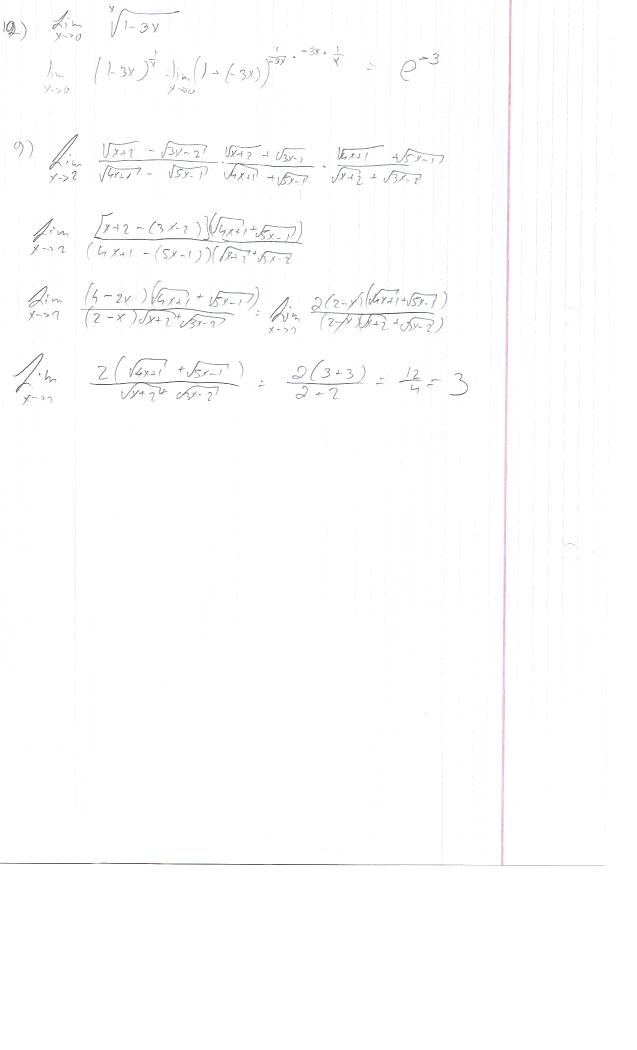 10) lim x→0 ˣ√(1-3x)
lim x→0 (1-3x)^(1/x) = lim x→0 (1+(-3x))^(1/(-3x) · -3x · 1/x) = e^(-3)
9) lim x→2 (√(x+2) - √(3x-2))/(√(4x+1) - √(5x-1)) · (√(x+2) + √(3x-2))/(√(4x+1) + √(5x-1)) · (√(4x+1) + √(5x-1))/(√(x+2) + √(3x-2))
lim x→2 ([x+2-(3x-2)](√(4x+1)+√(5x-1)))/((4x+1-(5x-1))(√(x+2)+√(3x-2)
lim x→2 ((4-2x)(√(4x+1)+√(5x-1)))/((2-x)√(x+2)+√(3x-2)) = lim x→2 (2(2-x)(√(4x+1)+√(5x-1)))/((2-x)(√(x+2)+√(3x-2)))
lim x→2 (2(√(4x+1)+√(5x-1)))/(√(x+2)+√(3x-2)) = (2(3+3))/(2+2) = 12/4 = 3